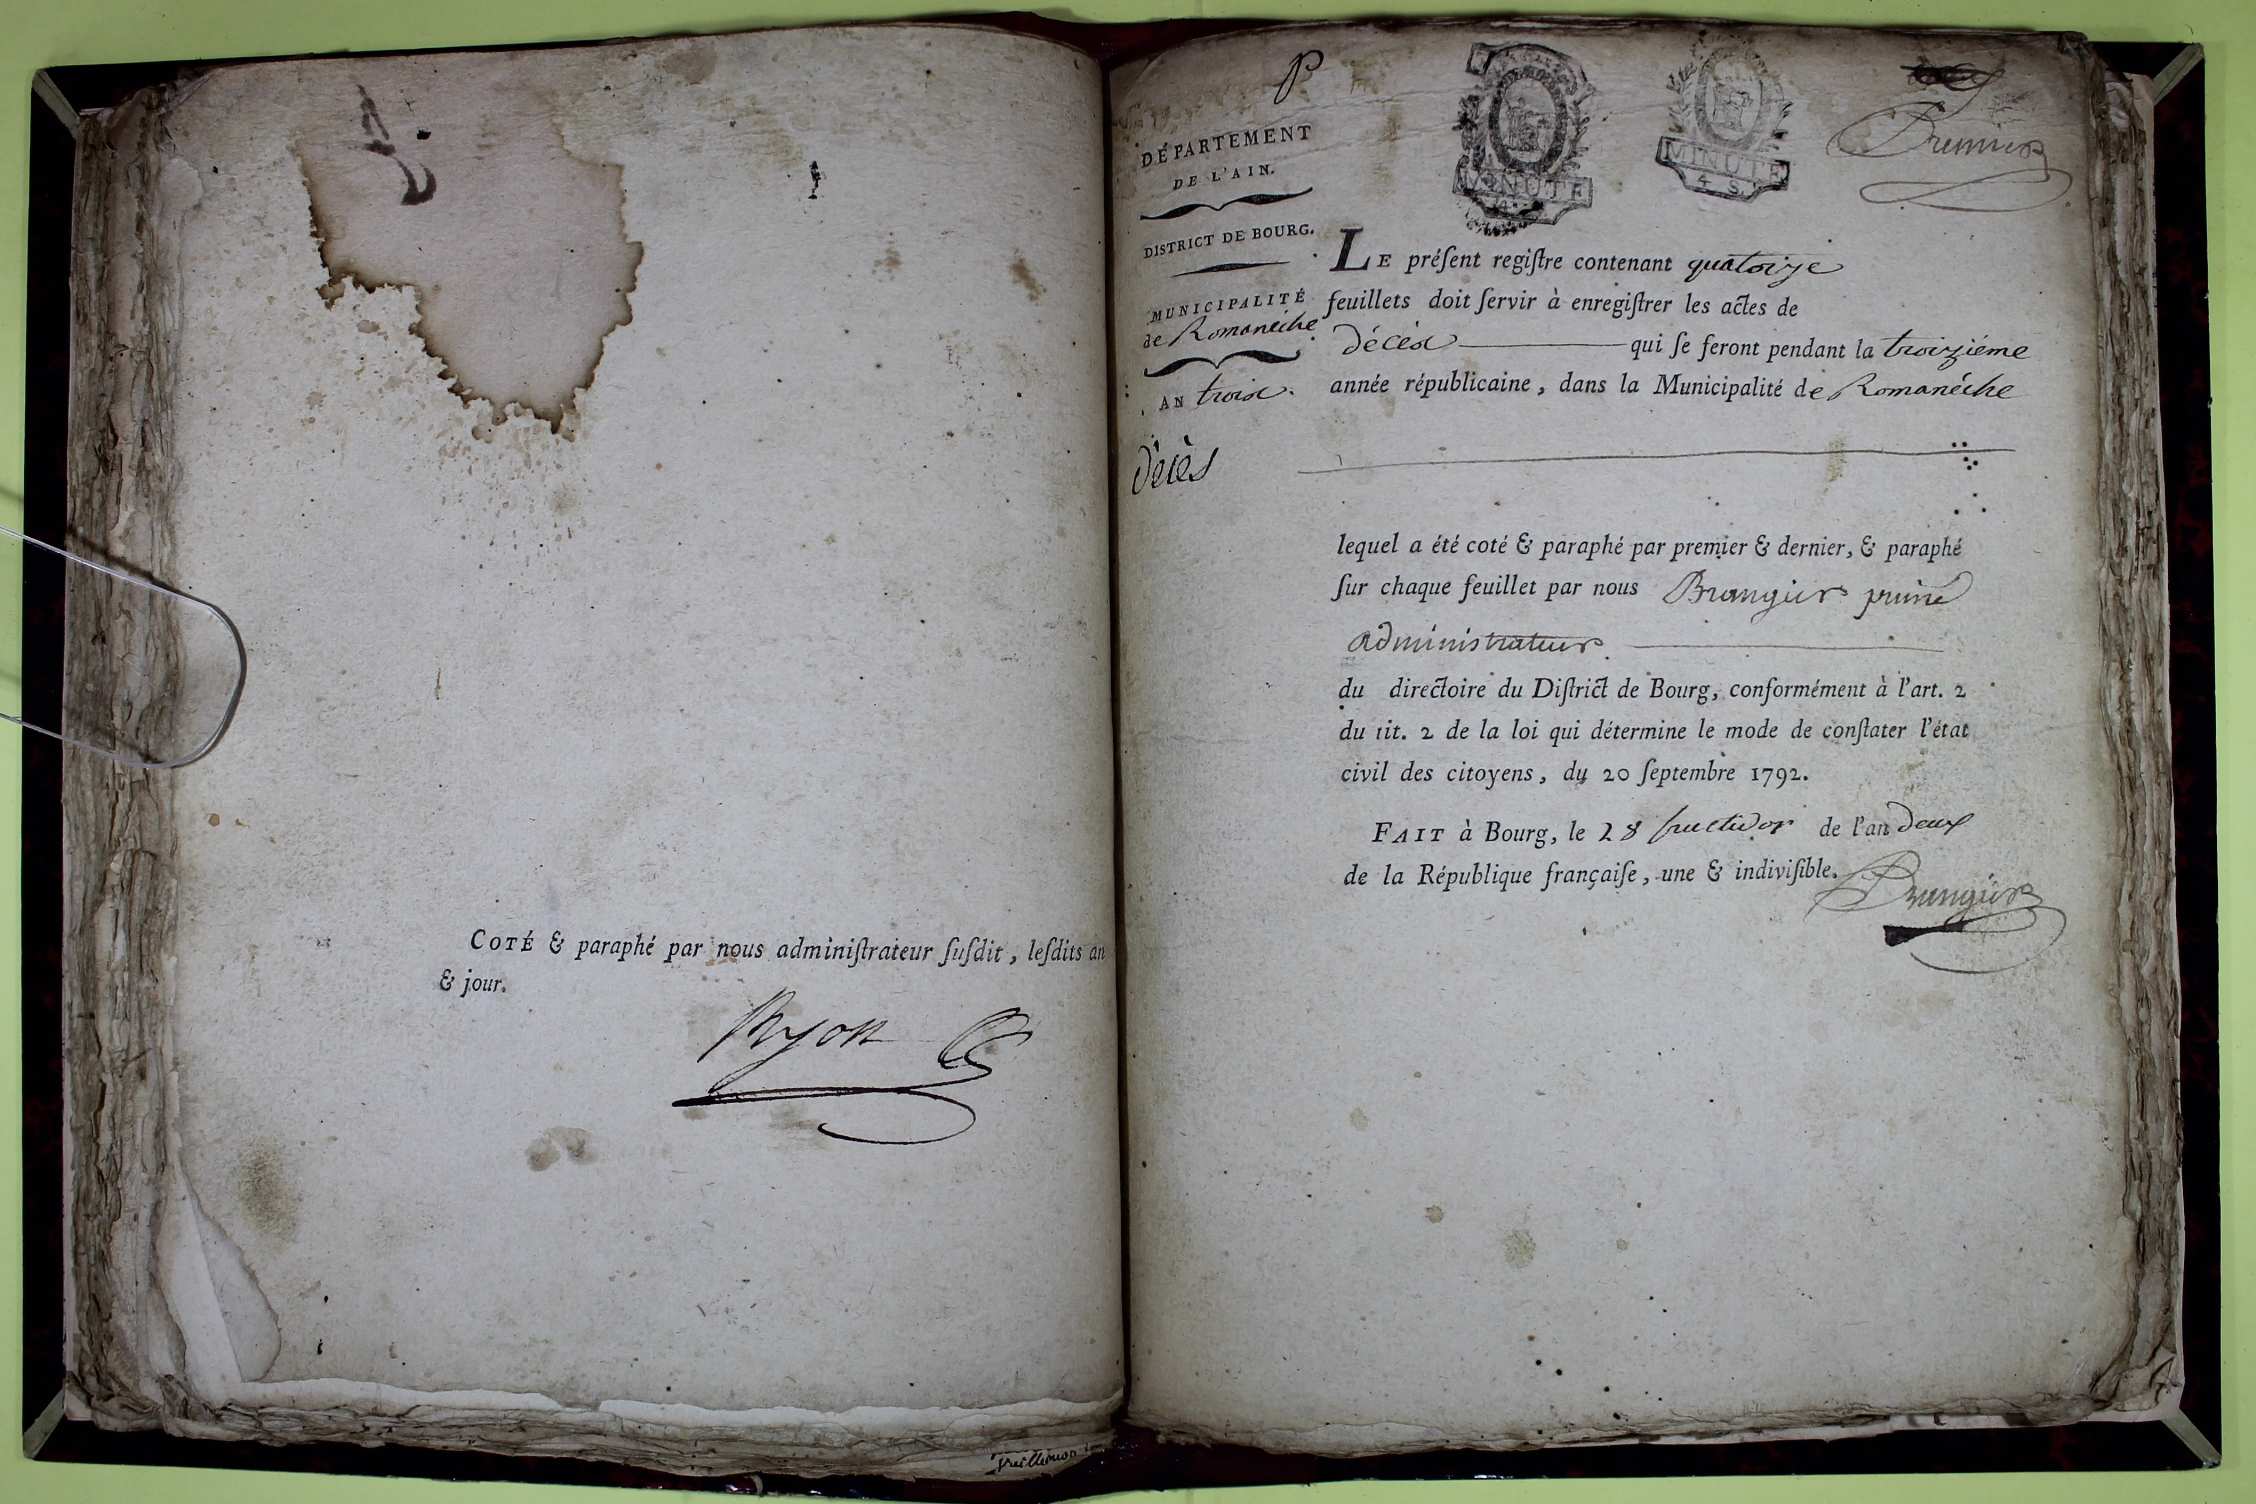 COTÉ & paraphé par nous adminiſtrateur ſuſdit, leſdits an
& jour.
Ryon
P
DÉPARTEMENT
DE L'AIN.
DISTRICT DE BOURG.
MUNICIPALITÉ
de Romanêche
AN trois.
décès
MINUTE
MINUTE
4 S.
LE préſent regiſtre contenant quatorze
feuillets doit ſervir à enregiſtrer les actes de
décès qui ſe feront pendant la troiziéme
année républicaine, dans la Municipalité de Romanêche
lequel a été coté & paraphé par premier & dernier, & paraphé
ſur chaque feuillet par nous Brangier
administrateur
du directoire du Diſtrict de Bourg, conformément à l'art. 2
du tit. 2 de la loi qui détermine le mode de conſtater l'état
civil des citoyens, du 20 ſeptembre 1792.
FAIT à Bourg, le 28 fructidor de l'an deux
de la République françaiſe, une & indiviſible.
Brangier